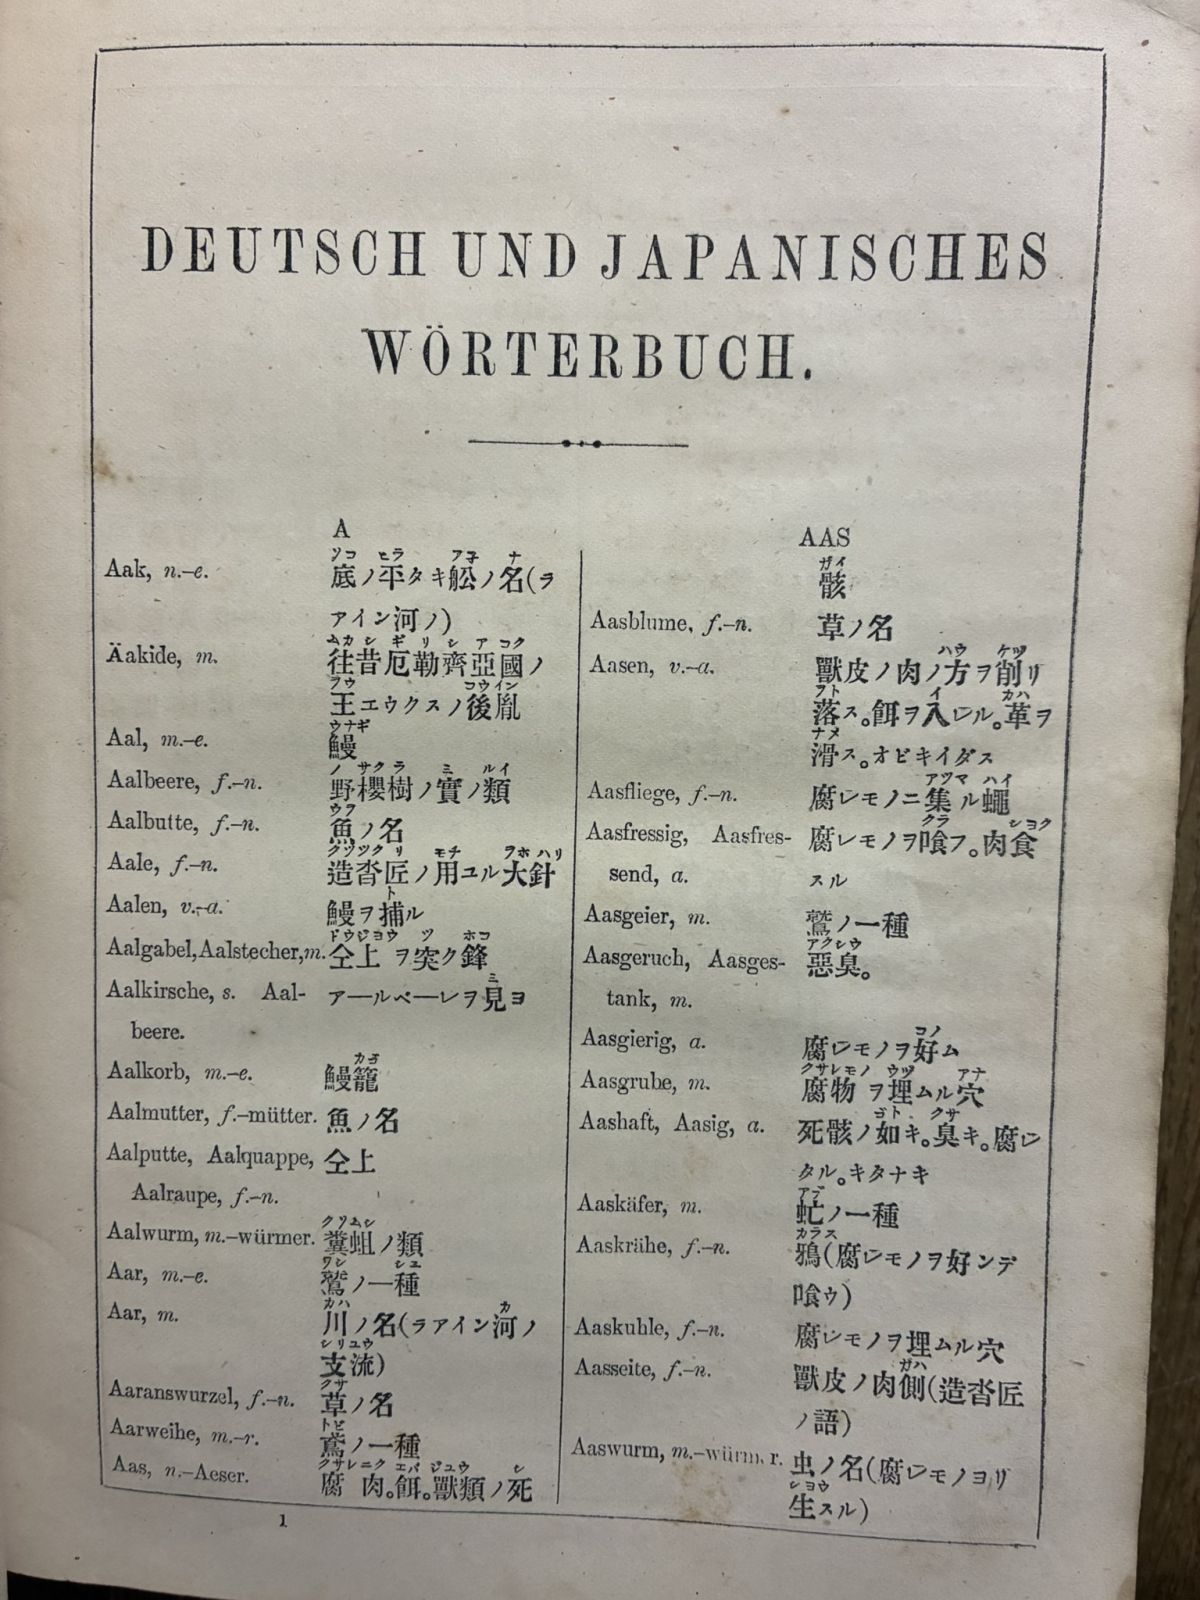 DEUTSCH UND JAPANISCHES
WÖRTERBUCH.
A
Aak, n.-e. 底ノ平タキ舩ノ名(ラ
アイン河ノ)
Äakide, m. 往昔厄勒齊亞國ノ
王エウクスノ後胤
Aal, m.-e. 鰻
Aalbeere, f.-n. 野櫻樹ノ實ノ類
Aalbutte, f.-n. 魚ノ名
Aale, f.-n. 造沓匠ノ用ユル大針
Aalen, v.-a. 鰻ヲ捕ル
Aalgabel, Aalstecher, m. 仝上ヲ突ク鋒
Aalkirsche, s. Aal- アールベーレヲ見ヨ
beere.
Aalkorb, m.-e. 鰻籠
Aalmutter, f.-mütter. 魚ノ名
Aalputte, Aalquappe, 仝上
Aalraupe, f.-n.
Aalwurm, m.-würmer. 糞蛆ノ類
Aar, m.-e. 鷲ノ一種
Aar, m. 川ノ名(ラアイン河ノ
支流)
Aaranswurzel, f.-n. 草ノ名
Aarweihe, m.-r. 鳶ノ一種
Aas, n.-Aeser. 腐肉。餌。獸類ノ死
1
AAS
骸
Aasblume, f.-n. 草ノ名
Aasen, v.-a. 獸皮ノ肉ノ方ヲ削リ
落ス。餌ヲ入レル。革ヲ
滑ス。オビキイダス
Aasfliege, f.-n. 腐レモノニ集ル蠅
Aasfressig, Aasfres- 腐レモノヲ喰フ。肉食
send, a. スル
Aasgeier, m. 鷲ノ一種
Aasgeruch, Aasges- 惡臭。
tank, m.
Aasgierig, a. 腐レモノヲ好ム
Aasgrube, m. 腐物ヲ埋ムル穴
Aashaft, Aasig, a. 死骸ノ如キ。臭キ。腐レ
タル。キタナキ
Aaskäfer, m. 虻ノ一種
Aaskrähe, f.-n. 鴉(腐レモノヲ好ンデ
喰ゥ)
Aaskuhle, f.-n. 腐レモノヲ埋ムル穴
Aasseite, f.-n. 獸皮ノ肉側(造沓匠
ノ語)
Aaswurm, m.-würm.r. 虫ノ名(腐レモノヨリ
生スル)